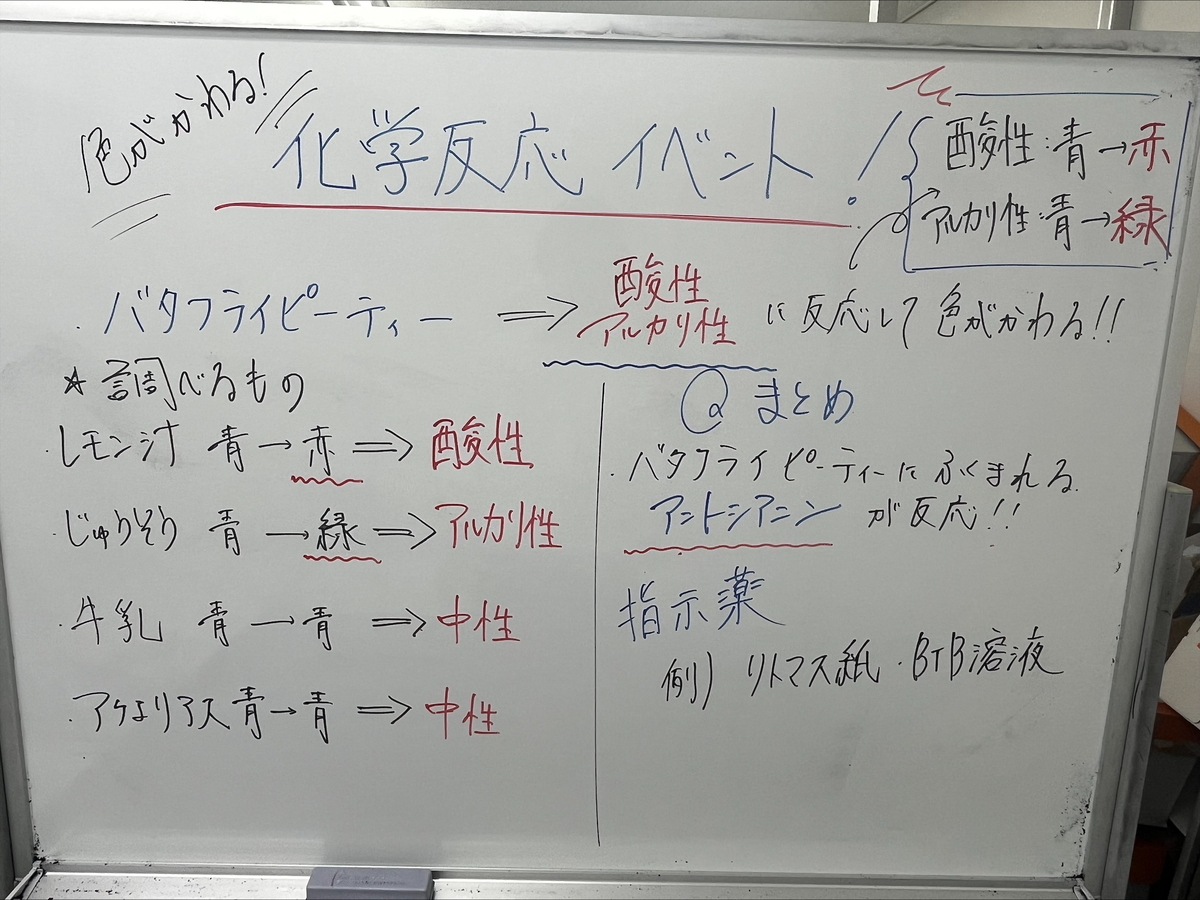 色がかわる!
化学反応 イベント!
酸性:青→赤
アルカリ性:青→緑
・バタフライピーティー ⇒ 酸性 アルカリ性 に反応して色がかわる!!
☆調べるもの
・レモン汁 青→赤⇒酸性
・じゅうそう 青→緑⇒アルカリ性
・牛乳 青→青⇒中性
・アクエリアス 青→青⇒中性
まとめ
・バタフライピーティーにふくまれる
アントシアニンが反応!!
指示薬
例) リトマス紙・BTB溶液